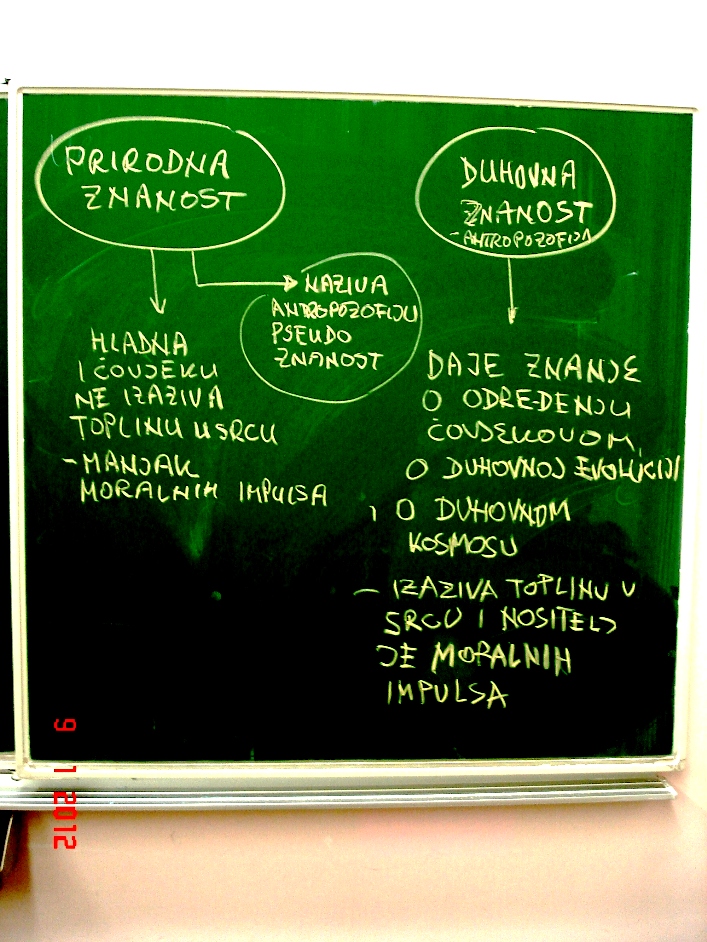 PRIRODNA
ZNANOST
HLADNA
I ČOVJEKU
NE IZAZIVA
TOPLINU U SRCU
-MANJAK
MORALNIH IMPULSA
NAZIVA
ANTROPOZOFIJU
PSEUDO
ZNANOST
DUHOVNA
ZNANOST
-ANTROPOZOFIJA
DAJE ZNANJE
O ODREĐENJU
ČOVJEKOVOM,
O DUHOVNOJ EVOLUCIJI
, O DUHOVNOM
KOSMOSU
- IZAZIVA TOPLINU U
SRCU I NOSITELJ
JE MORALNIH
IMPULSA
9 1 2012